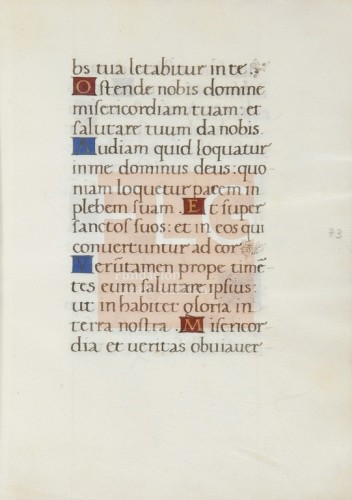 bs tua letabitur in te.
Ostende nobis domine
misericordiam tuam: et
salutare tuum da nobis.
Audiam quid loquatur
in me dominus deus: quo
niam loquetur pacem in
plebem suam. Et super
sanctos suos: et in eos qui
conuertuntur ad cor
Verũtamen prope timẽ
tes eum salutare ipsius:
ut in habitet gloria in
terra nostra. Misericor
dia et ueritas obuiauer
73
FLG